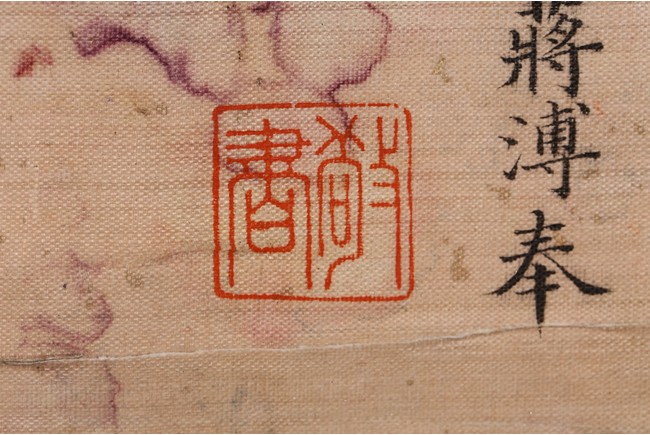 蔣溥奉
敬書